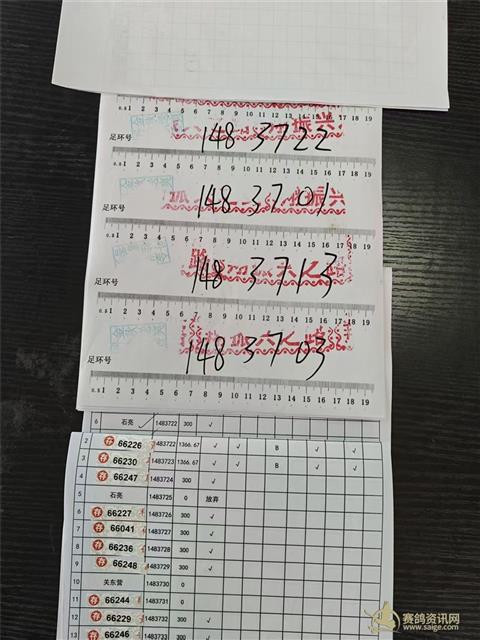 0.5 1 2 3 4 5 6 7 8 9 10 11 12 13 14 15 16 17 18 19
足环号 148 3722
0.5 1 2 3 4 5 6 7 8 9 10 11 12 13 14 15 16 17 18 19
足环号 148 3701
0.5 1 2 3 4 5 6 7 8 9 10 11 12 13 14 15 16 17 18 19
足环号 148 3713
0.5 1 2 3 4 5 6 7 8 9 10 11 12 13 14 15 16 17 18 19
足环号 148 3703
0.5 1 2 3 4 5 6 7 8 9 10 11 12 13 14 15 16 17 18 19
6 石亮 ✓ 1483722 300 √
2 存 66226 1483722 1366.67 √ √ B √ √
3 存 66230 1483723 1366.67 √ √ B √ √
4 存 66247 1483724 300 √
5 石亮 1483725 0 放弃
6 存 66227 1483726 300 √
7 存 66041 1483727 300 √
8 存 66236 1483728 300 √
9 存 66248 1483729 300 √
10 关东营 1483730 0
11 存 66244 1483731 0
12 存 66229 1483732 300 √
13 存 66246 1483733 300 √
赛鸽资讯网
www.saige.com